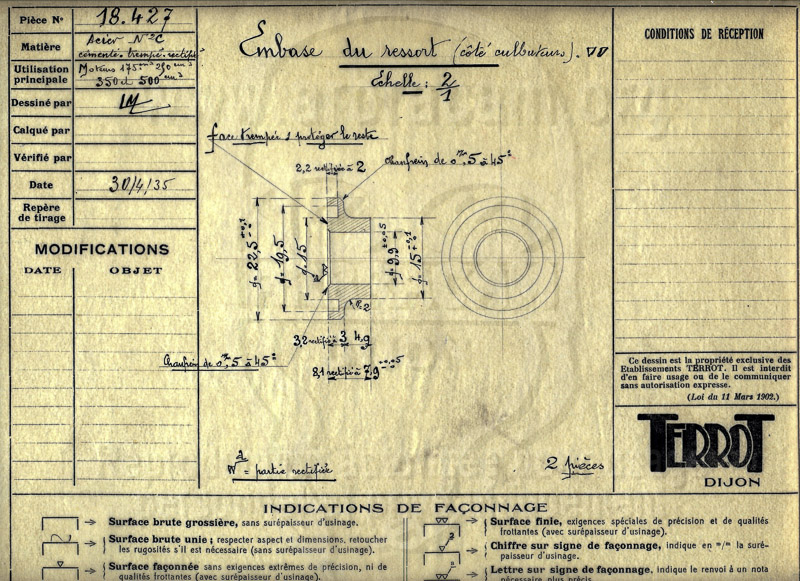 Pièce Nº 18.427
Matière Acier Nº2C
cémenté. trempé. rectifié
Utilisation
principale
Moteurs 175cm3 250cm3
350 et 500cm3
Dessiné par
Calqué par
Vérifié par
Date 30/4/35
Repère
de tirage
MODIFICATIONS
DATE OBJET
Embase du ressort (côté culbuteurs). ∇∇
Echelle : 2/1
face trempée ; protéger le reste
2,2 rectifié à 2
Chanfrein de 0m/m,5 à 45°
22,5
19,5
15
9,9
15
3,2 rectifié à 3 4,9
Chanfrein de 0m/m,5 à 45°
8,1 rectifié à 7,9
= partie rectifiée
2 pièces
CONDITIONS DE RÉCEPTION
Ce dessin est la propriété exclusive des
Etablissements TERROT. Il est interdit
d'en faire usage ou de le communiquer
sans autorisation expresse.
(Loi du 11 Mars 1902.)
TERROT
DIJON
INDICATIONS DE FAÇONNAGE
Surface brute grossière, sans surépaisseur d'usinage.
Surface brute unie ; respecter aspect et dimensions, retoucher
les rugosités s'il est nécessaire (sans surépaisseur d'usinage).
Surface façonnée sans exigences extrêmes de précision, ni de
qualités frottantes (avec surépaisseur d'usinage).
Surface finie, exigences spéciales de précision et de qualités
frottantes (avec surépaisseur d'usinage).
Chiffre sur signe de façonnage, indique en m/m la suré-
paisseur d'usinage.
Lettre sur signe de façonnage, indique le renvoi à un nota
nécessaire plus précis.